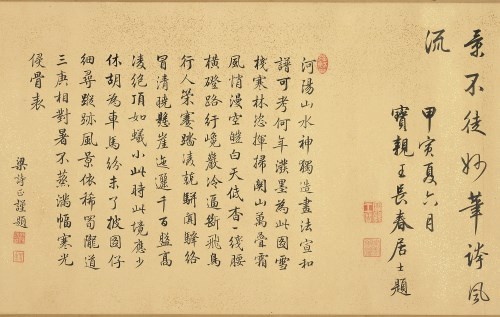 景不徒妙筆誇風
流
甲寅夏六月
寶親王長春居士題
河陽山水神獨造畫法宣和
譜可考何年潑墨為此圖雪
棧寒林恣揮掃關山萬疊霜
風悄漫空皚白天低杳一綫腰
橫磴路行嶢巖冷逼斷飛鳥
行人策蹇踏凌兢駢闐驛絡
冒清曉懸崖迤邐千百盤高
凌絕頂如蟻小此時此境應少
休胡為車馬紛未了披圖仔
細尋蹤跡風景依稀蜀隴道
三庚相對暑不蒸滿幅寒光
侵骨表
梁詩正謹題